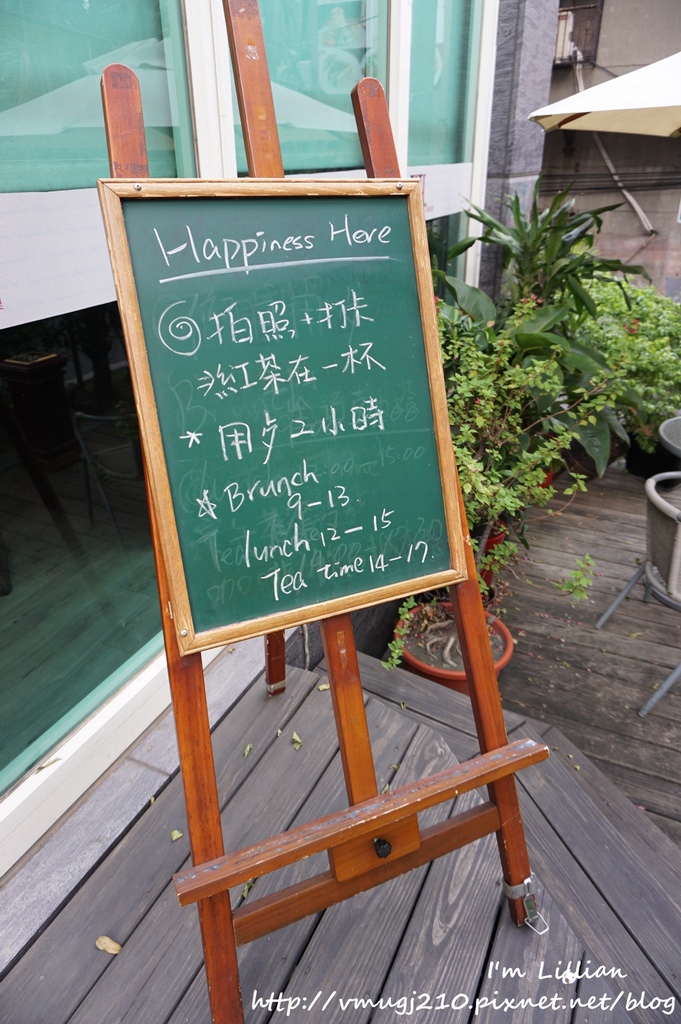 Happiness Here
拍照+打卡
⇒紅茶在一杯
* 用歺2小時
☆Brunch
9-13.
lunch 12-15
Tea time 14-17.
I'm Lillian
http://vmugj210.pixnet.net/blog